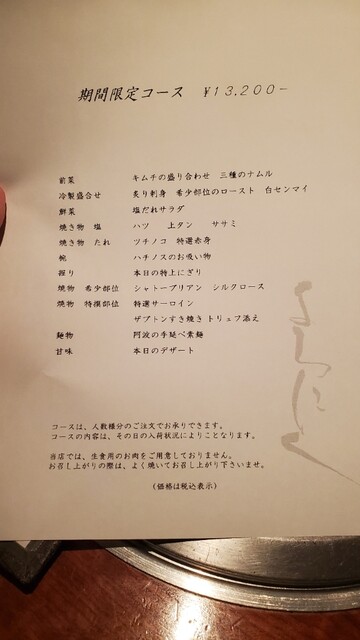 期間限定コース ¥13,200-
前菜 キムチの盛り合わせ 三種のナムル
冷製盛合せ 炙り刺身 希少部位のロースト 白センマイ
鮮菜 塩だれサラダ
焼き物 塩 ハツ 上タン ササミ
焼き物 たれ ツチノコ 特選赤身
椀 ハチノスのお吸い物
握り 本日の特上にぎり
焼物 希少部位 シャトーブリアン シルクロース
焼物 特撰部位 特選サーロイン
ザブトンすき焼き トリュフ添え
麺物 阿波の手延べ素麺
甘味 本日のデザート
よろにく
コースは、人数様分のご注文でお承りできます。
コースの内容は、その日の入荷状況によりことなります。
当店では、生食用のお肉をご用意しておりません。
お召し上がりの際は、よく焼いてお召し上がり下さいませ。
(価格は税込表示)